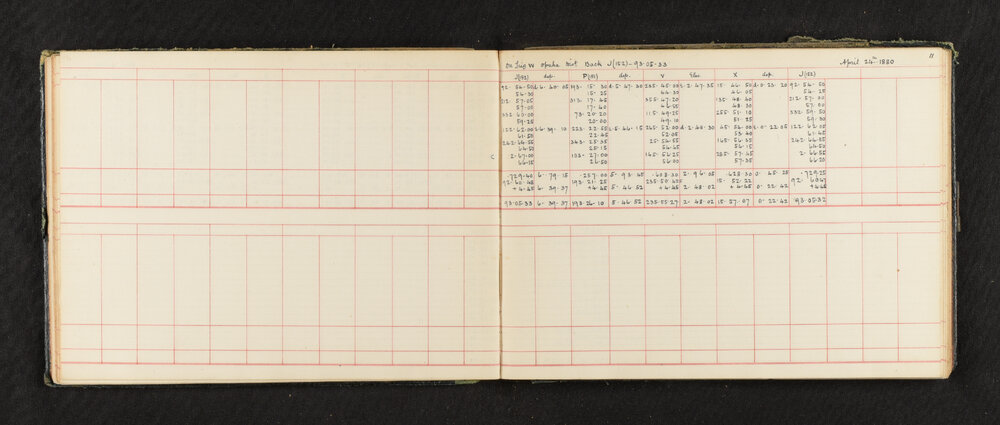 11
April 24th 1880
On Trip W Opake Dist Back J(152) - 93.05.33
J(152) dep. P(151) dep. V Elev. X dep. J(152)
92. 54. 50 d 6. 40. 05 193. 15. 30 d. 5. 47. 30 235. 45. 00 d. 2. 47. 35 15. 46. 50 d. 0. 23. 20 92. 54. 50
54. 30 15. 25 44. 30 46. 05 54. 25
212. 57. 05 313. 17. 45 355. 47. 20 135. 48. 40 212. 57. 30
57. 05 17. 40 46. 55 48. 30 57. 00
332. 60. 00 73. 20. 20 115. 49. 25 255. 51. 10 332. 59. 50
59. 25 20. 00 49. 10 51. 25 59. 30
122. 62. 00 d. 6. 39. 10 223. 22. 55 d. 5. 46. 15 265. 52. 00 d. 2. 40. 30 45. 54. 00 d. 0. 22. 05 122. 62. 00
61. 50 22. 45 52. 05 53. 40 61. 45
242. 64. 55 343. 25. 35 25. 54. 55 165. 56. 35 242. 64. 35
64. 50 25. 15 54. 45 56. 15 64. 50
2. 67. 00 103. 27. 00 145. 56. 25 285. 57. 45 2. 66. 55
66. 15 26. 50 56. 00 57. 35 66. 20
.729. 40 6. 79. 15 .257. 00 5. 93. 45 .608. 30 2. 96. 05 .628. 30 0. 45. 25 .729. 25
92. 60. 48 193. 21. 25 235. 50. 42 15. 52. 22 92. 60. 47
+4. 45 6. 39. 37 +4. 45 5. 46. 52 +4. 45 2. 48. 02 +4. 45 0. 22. 42 +4. 45
93. 05. 33 6. 39. 37 193. 26. 10 5. 46. 52 235. 55. 27 2. 48. 02 15. 57. 07 0. 22. 42 93. 05. 32